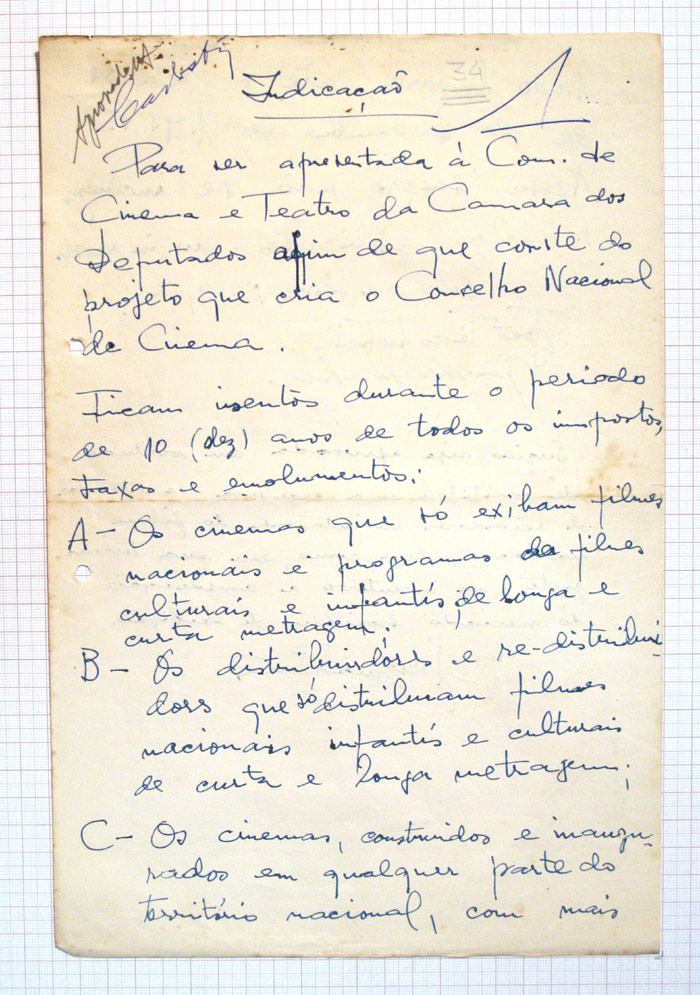 Indicação
34
Para ser apresentada à Com. de
Cinema e Teatro da Camara dos
Deputados afim de que conste do
projeto que cria o Conselho Nacional
de Cinema.
Ficam isentos durante o periodo
de 10 (dez) anos de todos os impostos,
taxas e emolumentos:
A - Os cinemas que só exibam filmes
nacionais e programas de filmes
culturais e infantís, de longa e
curta metragem;
B - Os distribuidores e re-distribui-
dores que só distribuam filmes
nacionais infantís e culturais
de curta e longa metragem;
C - Os cinemas, construidos e inaugu-
rados em qualquer parte do
território nacional, com mais